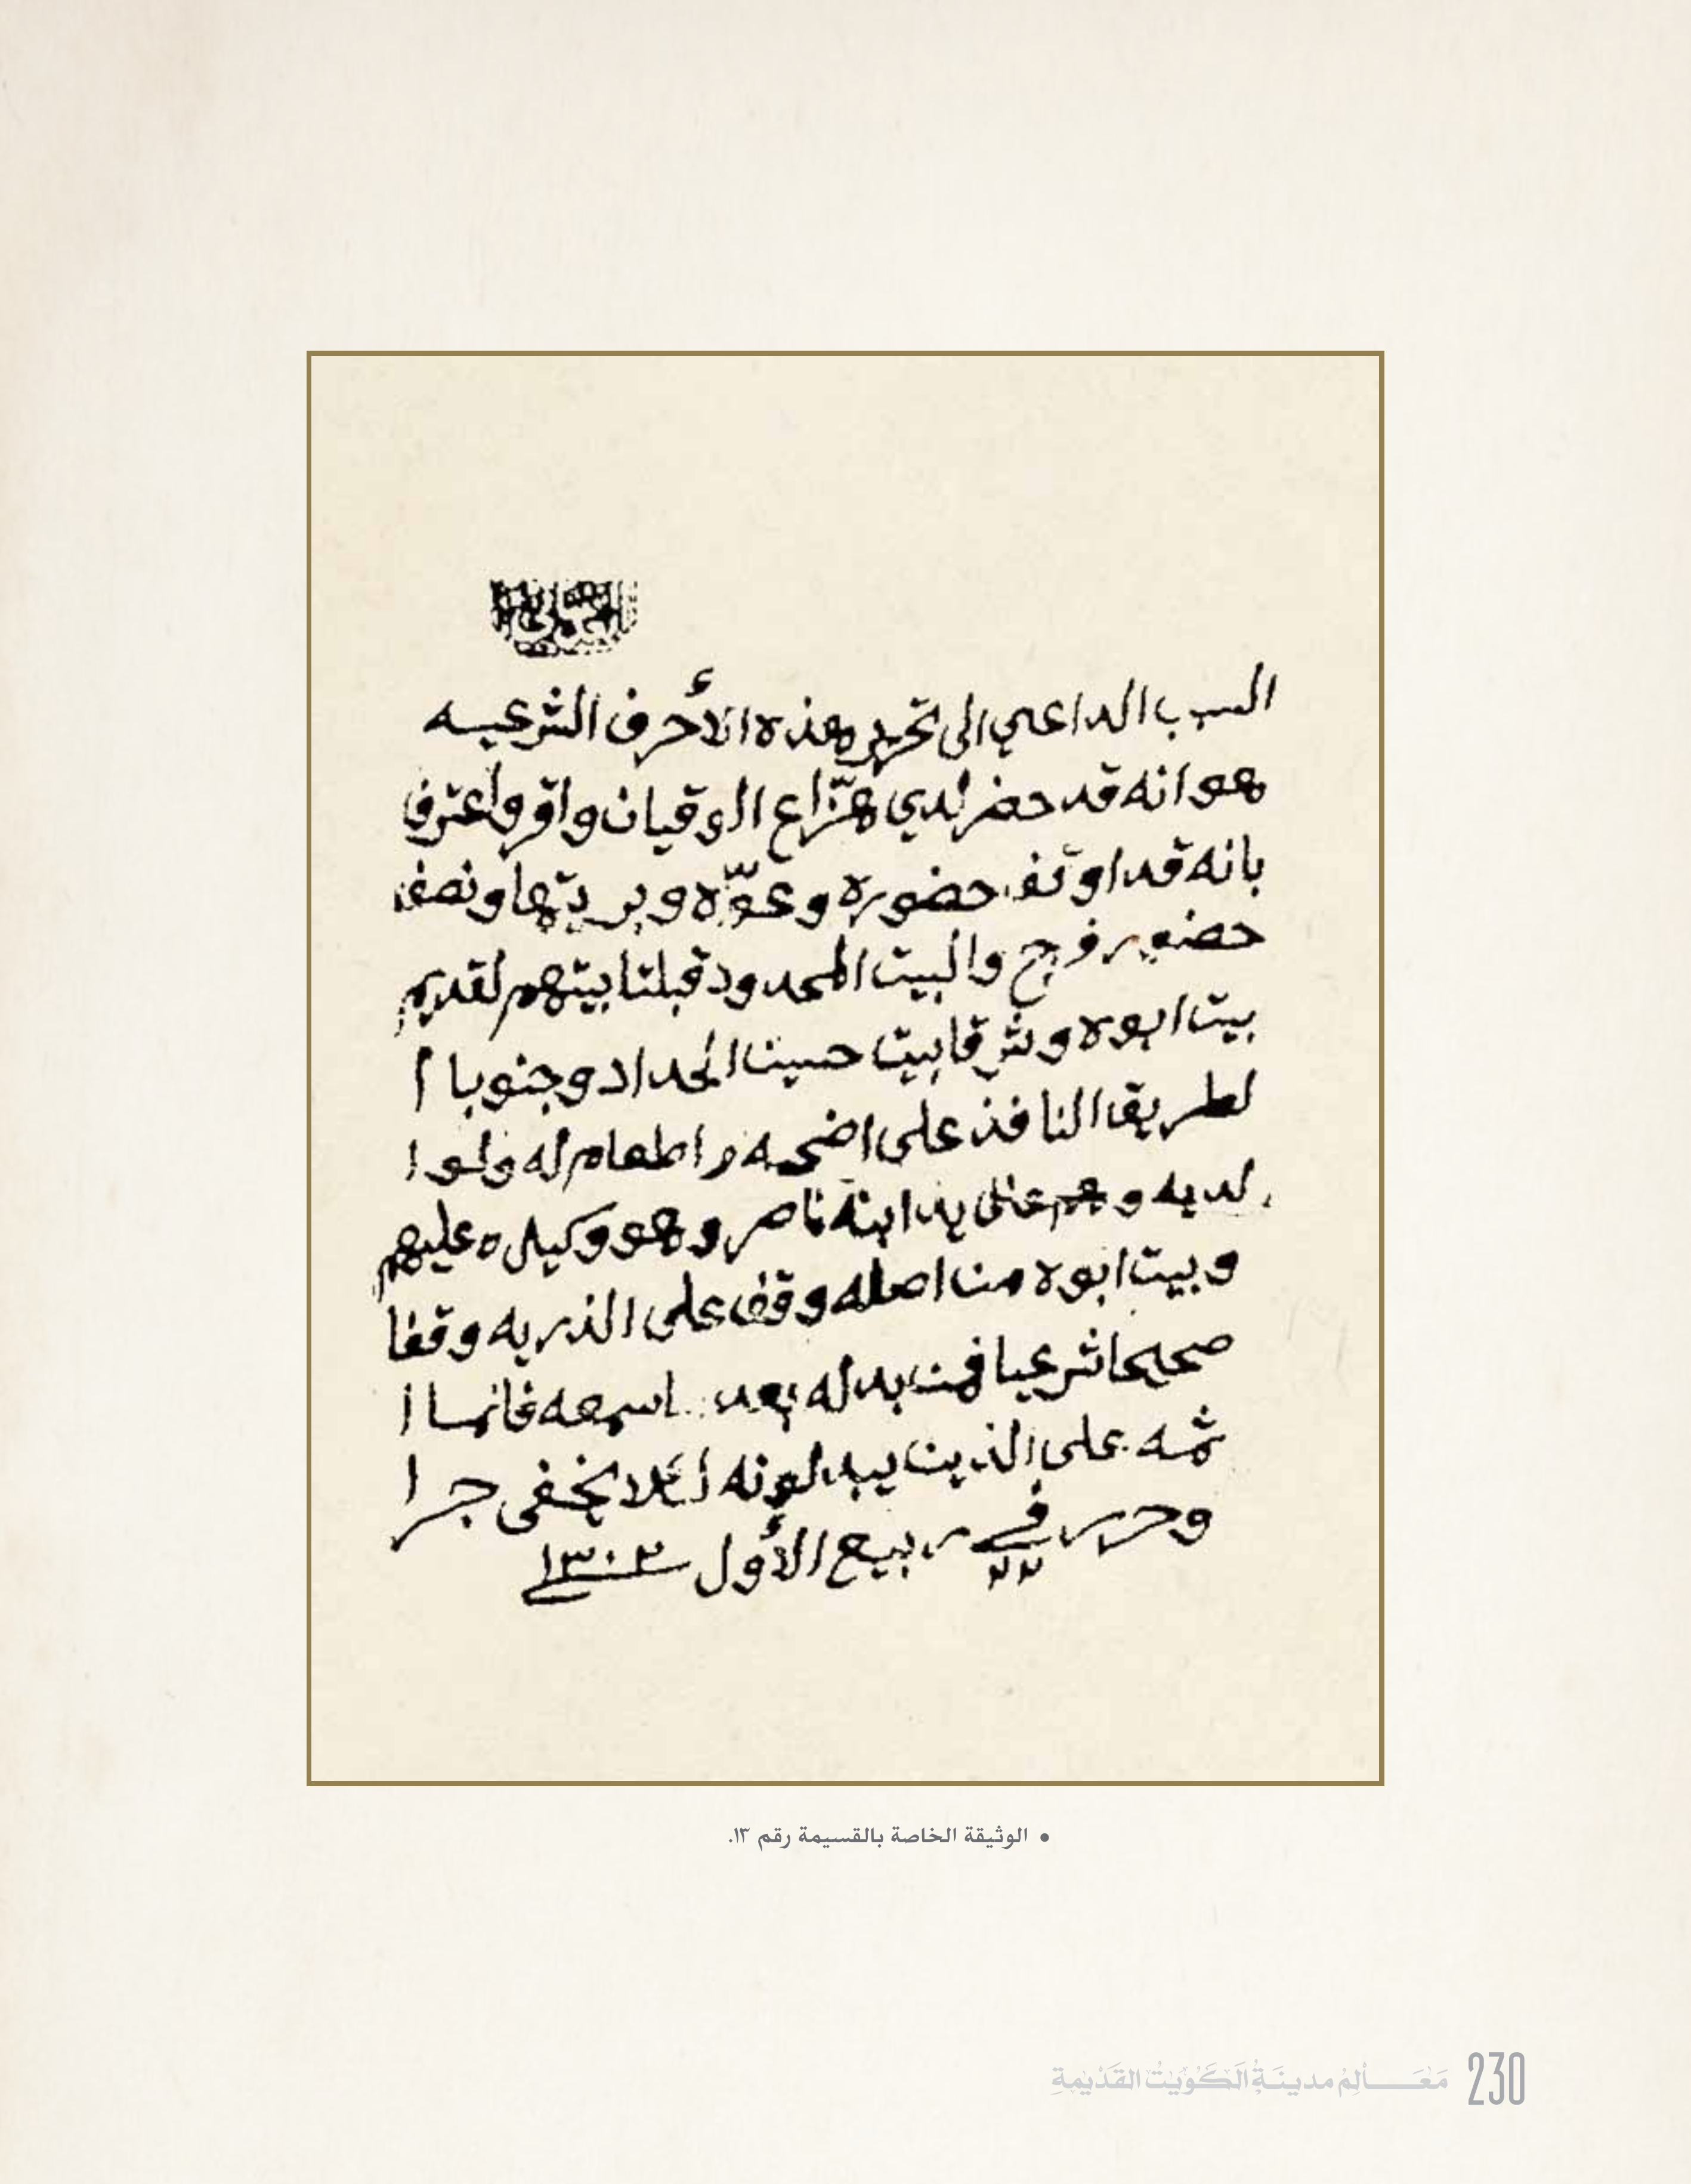 السبب الداعي الى تحرير هذه الأحرف الشرعيه
هو انه قد حضر لدي هزّاع الوقيان واقر واعترف
بانه قد اوقف حضوره وعوّشه وبريتها ونصف
حضور فرج والبيت المحدود قبلتا بيتهم لقديم
بيت ابوه وشرقا بيت حسين الحداد وجنوبا ا
لطريق النافذ على اضحيه واطعام له ولوا
لديه وهم على يد ابنه ناصر وهو وكيله عليهم
وبيت ابوه من اصله وقف على الذريه وقفا
صحيحا شرعيا فمن بدله بعد اسمعه فانما ا
ثمه على الذين يبدلونه لئلا يخفى جرا
وحرر في ٢٢ ربيع الأول ١٣٠٣
• الوثيقة الخاصة بالقسيمة رقم ١٣.
230 مَعَالِمُ مدينَةِ الكُوَيْتِ القَدْيمَةِ